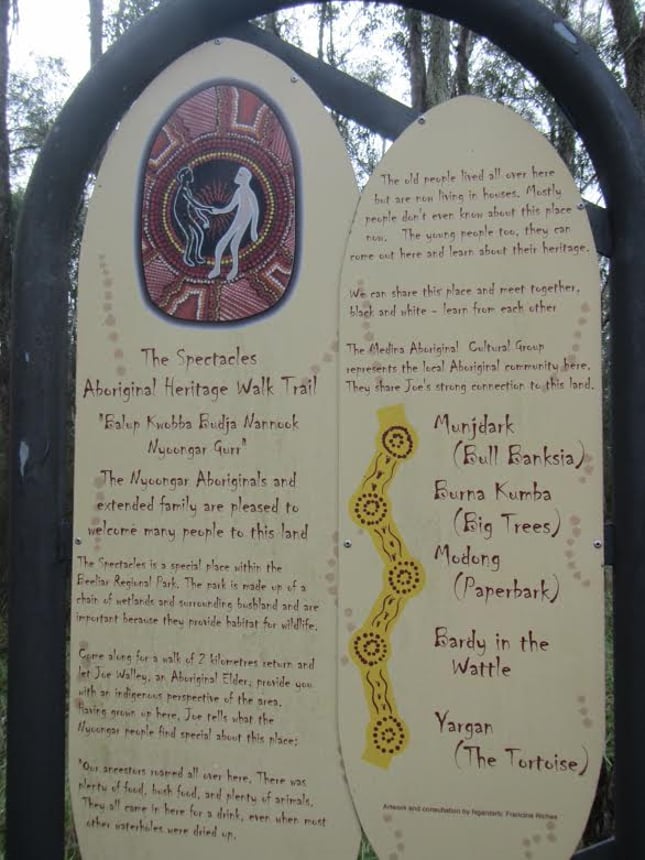 The Spectacles
Aboriginal Heritage Walk Trail
"Balup Kwobba Budja Nannook
Nyoongar Gurr"
The Nyoongar Aboriginals and
extended family are pleased to
welcome many people to this land
The Spectacles is a special place within the
Beeliar Regional Park. The park is made up of a
chain of wetlands and surrounding bushland and are
important because they provide habitat for wildlife.
Come along for a walk of 2 kilometres return and
let Joe Walley, an Aboriginal Elder, provide you
with an indigenous perspective of the area.
Having grown up here, Joe tells what the
Nyoongar people find special about this place:
"Our ancestors roamed all over here. There was
plenty of food, bush food, and plenty of animals.
They all came in here for a drink, even when most
other waterholes were dried up.
The old people lived all over here
but are now living in houses. Mostly
people don't even know about this place
now. The young people too, they can
come out here and learn about their heritage.
We can share this place and meet together,
black and white - learn from each other
The Medina Aboriginal Cultural Group
represents the local Aboriginal community here.
They share Joe's strong connection to this land.
Munjdark
(Bull Banksia)
Burna Kumba
(Big Trees)
Modong
(Paperbark)
Bardy in the
Wattle
Yargan
(The Tortoise)
Artwork and consultation by Francine Riches